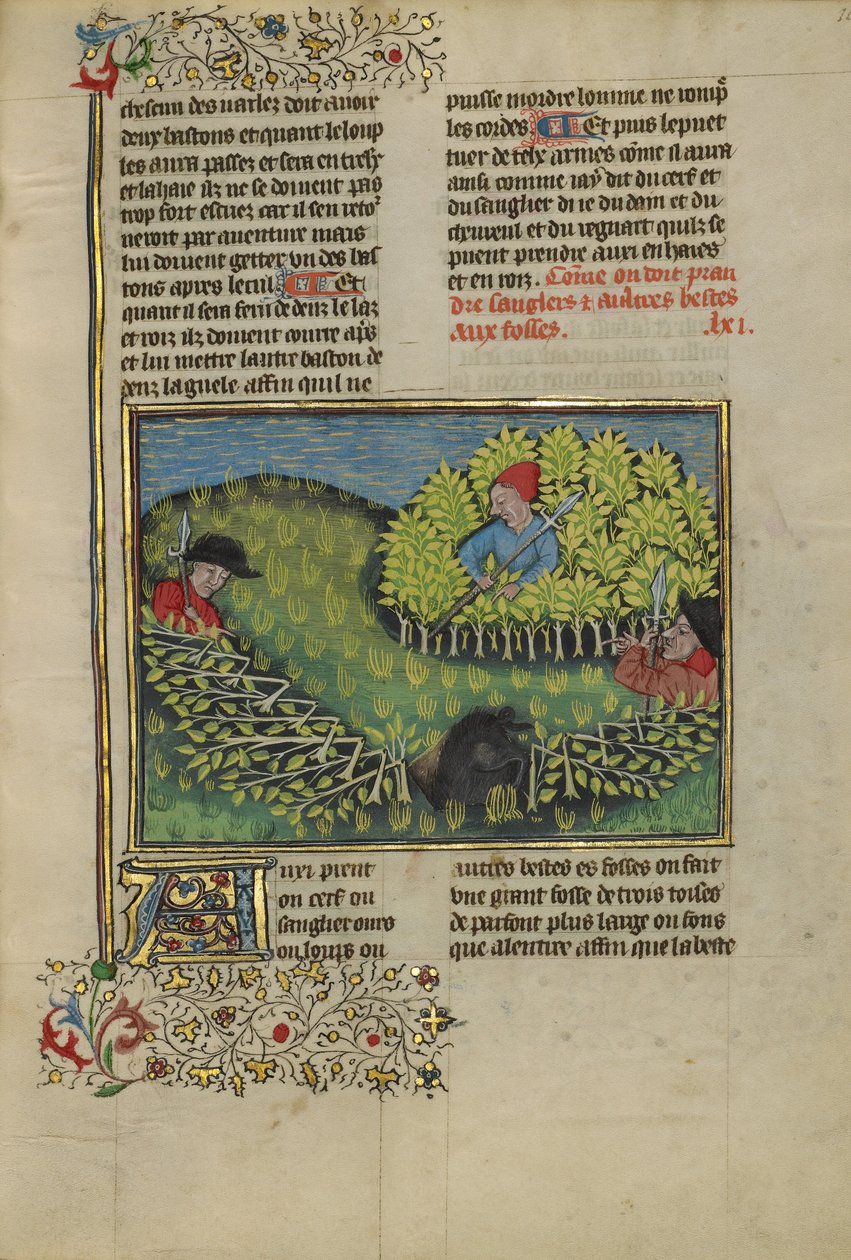 chescun des varlez doit auoir
deux bastons et quant le loup
les aura passez et sera entre lx
et la haie ilz ne se doiuent pas
trop fort escriez car il sen reto'
neroit par auenture mais
lui doiuent getter vn des bas
tons apres le cul Et
quant il sera feru dedenz le laz
et roiz ilz doiuent courre ap̃s
et lui mettre lautre baston de
denz la guele affin quil ne
puisse mordre lomme ne romp̃
les cordes Et puis le puet
tuer de telx armes cõme il aura
ainsi comme iaÿ dit du cerf et
du sanglier di ie du dain et du
cheureul et du regnart quilz se
puent prendre auxi en haies
et en roiz. Cõme on doit pran
dre sanglers & aultres bestes
aux fosses. .lxi.
Auxi prent
on cerf ou
sanglier ours
ou loups ou
autres bestes es fosses on fait
vne grant fosse de trois toises
de parfont plus large ou fons
que a lentree affin que la beste